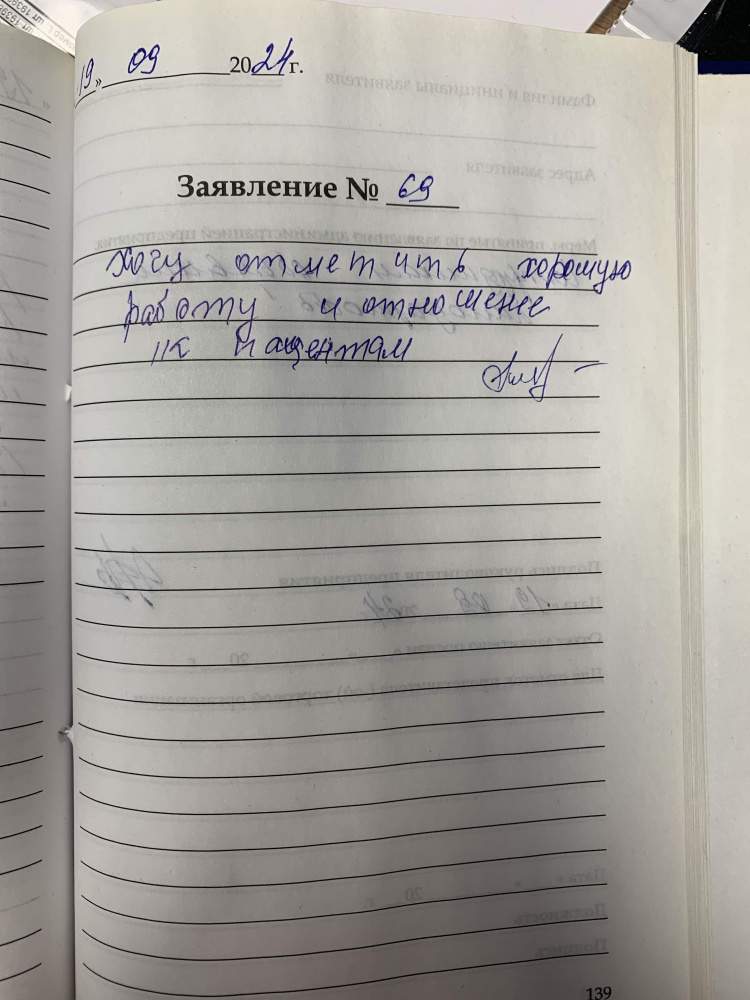 19 » 09 2024 г.
Заявление № 69
Хочу отметить хорошую
работу и отношение
к пациентам
139